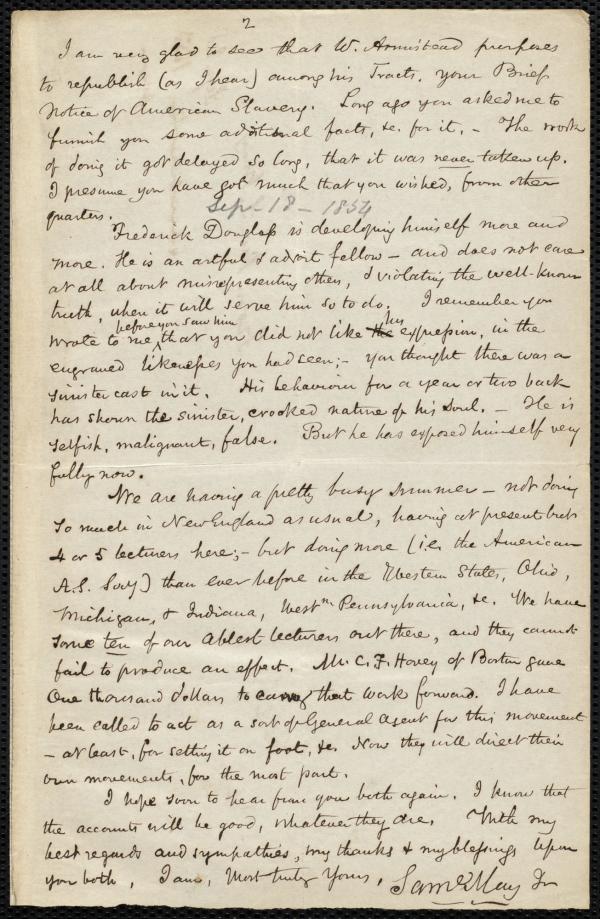 2
I am very glad to see that W. Armistead purposes
to republish (as I hear) among his Tracts, your Brief
Notice of American Slavery. Long ago you asked me to
furnish you some additional facts, &c. for it. – The work
of doing it got delayed so long, that it was never taken up.
I presume you have got much that you wished, from other
quarters.
Sep. 18 – 1854
Frederick Douglass is developing himself more and
more. He is an artful & adroit fellow – and does not care
at all about misrepresenting others, & violating the well-known
truth, when it will serve him so to do. I remember you
wrote to me, before you saw him that you did not like the his expression, in the
engraved likenesses you had seen; – you thought there was a
sinister cast in it. His behaviour for a year or two back
has shown the sinister, crooked nature of his soul. – He is
selfish, malignant, false. But he has exposed himself very
fully now.
We are having a pretty busy summer – not doing
so much in New England as usual, having at present but
4 or 5 lecturers here; – but doing more (i.e. the American
A.S. Socy) than ever before in the Western States, Ohio,
Michigan, & Indiana, Westn. Pennsylvania, &c. We have
some ten of our ablest lecturers out there, and they cannot
fail to produce an effect. Mr. C. F. Hovey of Boston gave
One thousand dollars to carry that work forward. I have
been called to act as a sort of General Agent for this movement
– at least, for setting it on foot, &c. Now they will direct their
own movements, for the most part.
I hope soon to hear from you both again. I know that
the accounts will be good, whatever they are. With my
best regards and sympathies, my thanks & my blessings upon
you both, I am, Most truly Yours, Saml May Jr